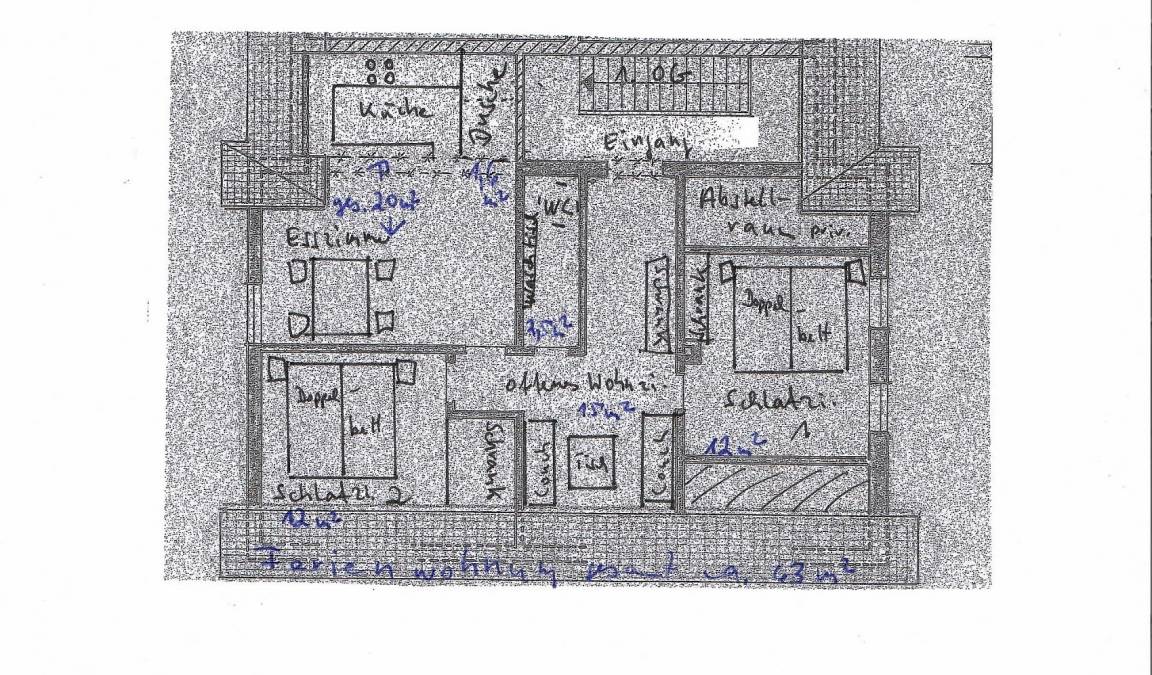 1. OG
Küche
Dusche
Eingang
ges. 20 m²
m²
WC
Abstell-
raum priv.
Esszimmer
Waschtisch
Schrank
Schrank
Doppel-
bett
1,5 m²
offenes Wohnzi.
15 m²
Doppel-
bett
Schlafzi.
1
12 m²
Schrank
Couch
Couch
Schlafzi. 2
12 m²
Ferienwohnung gesamt ca. 63 m²